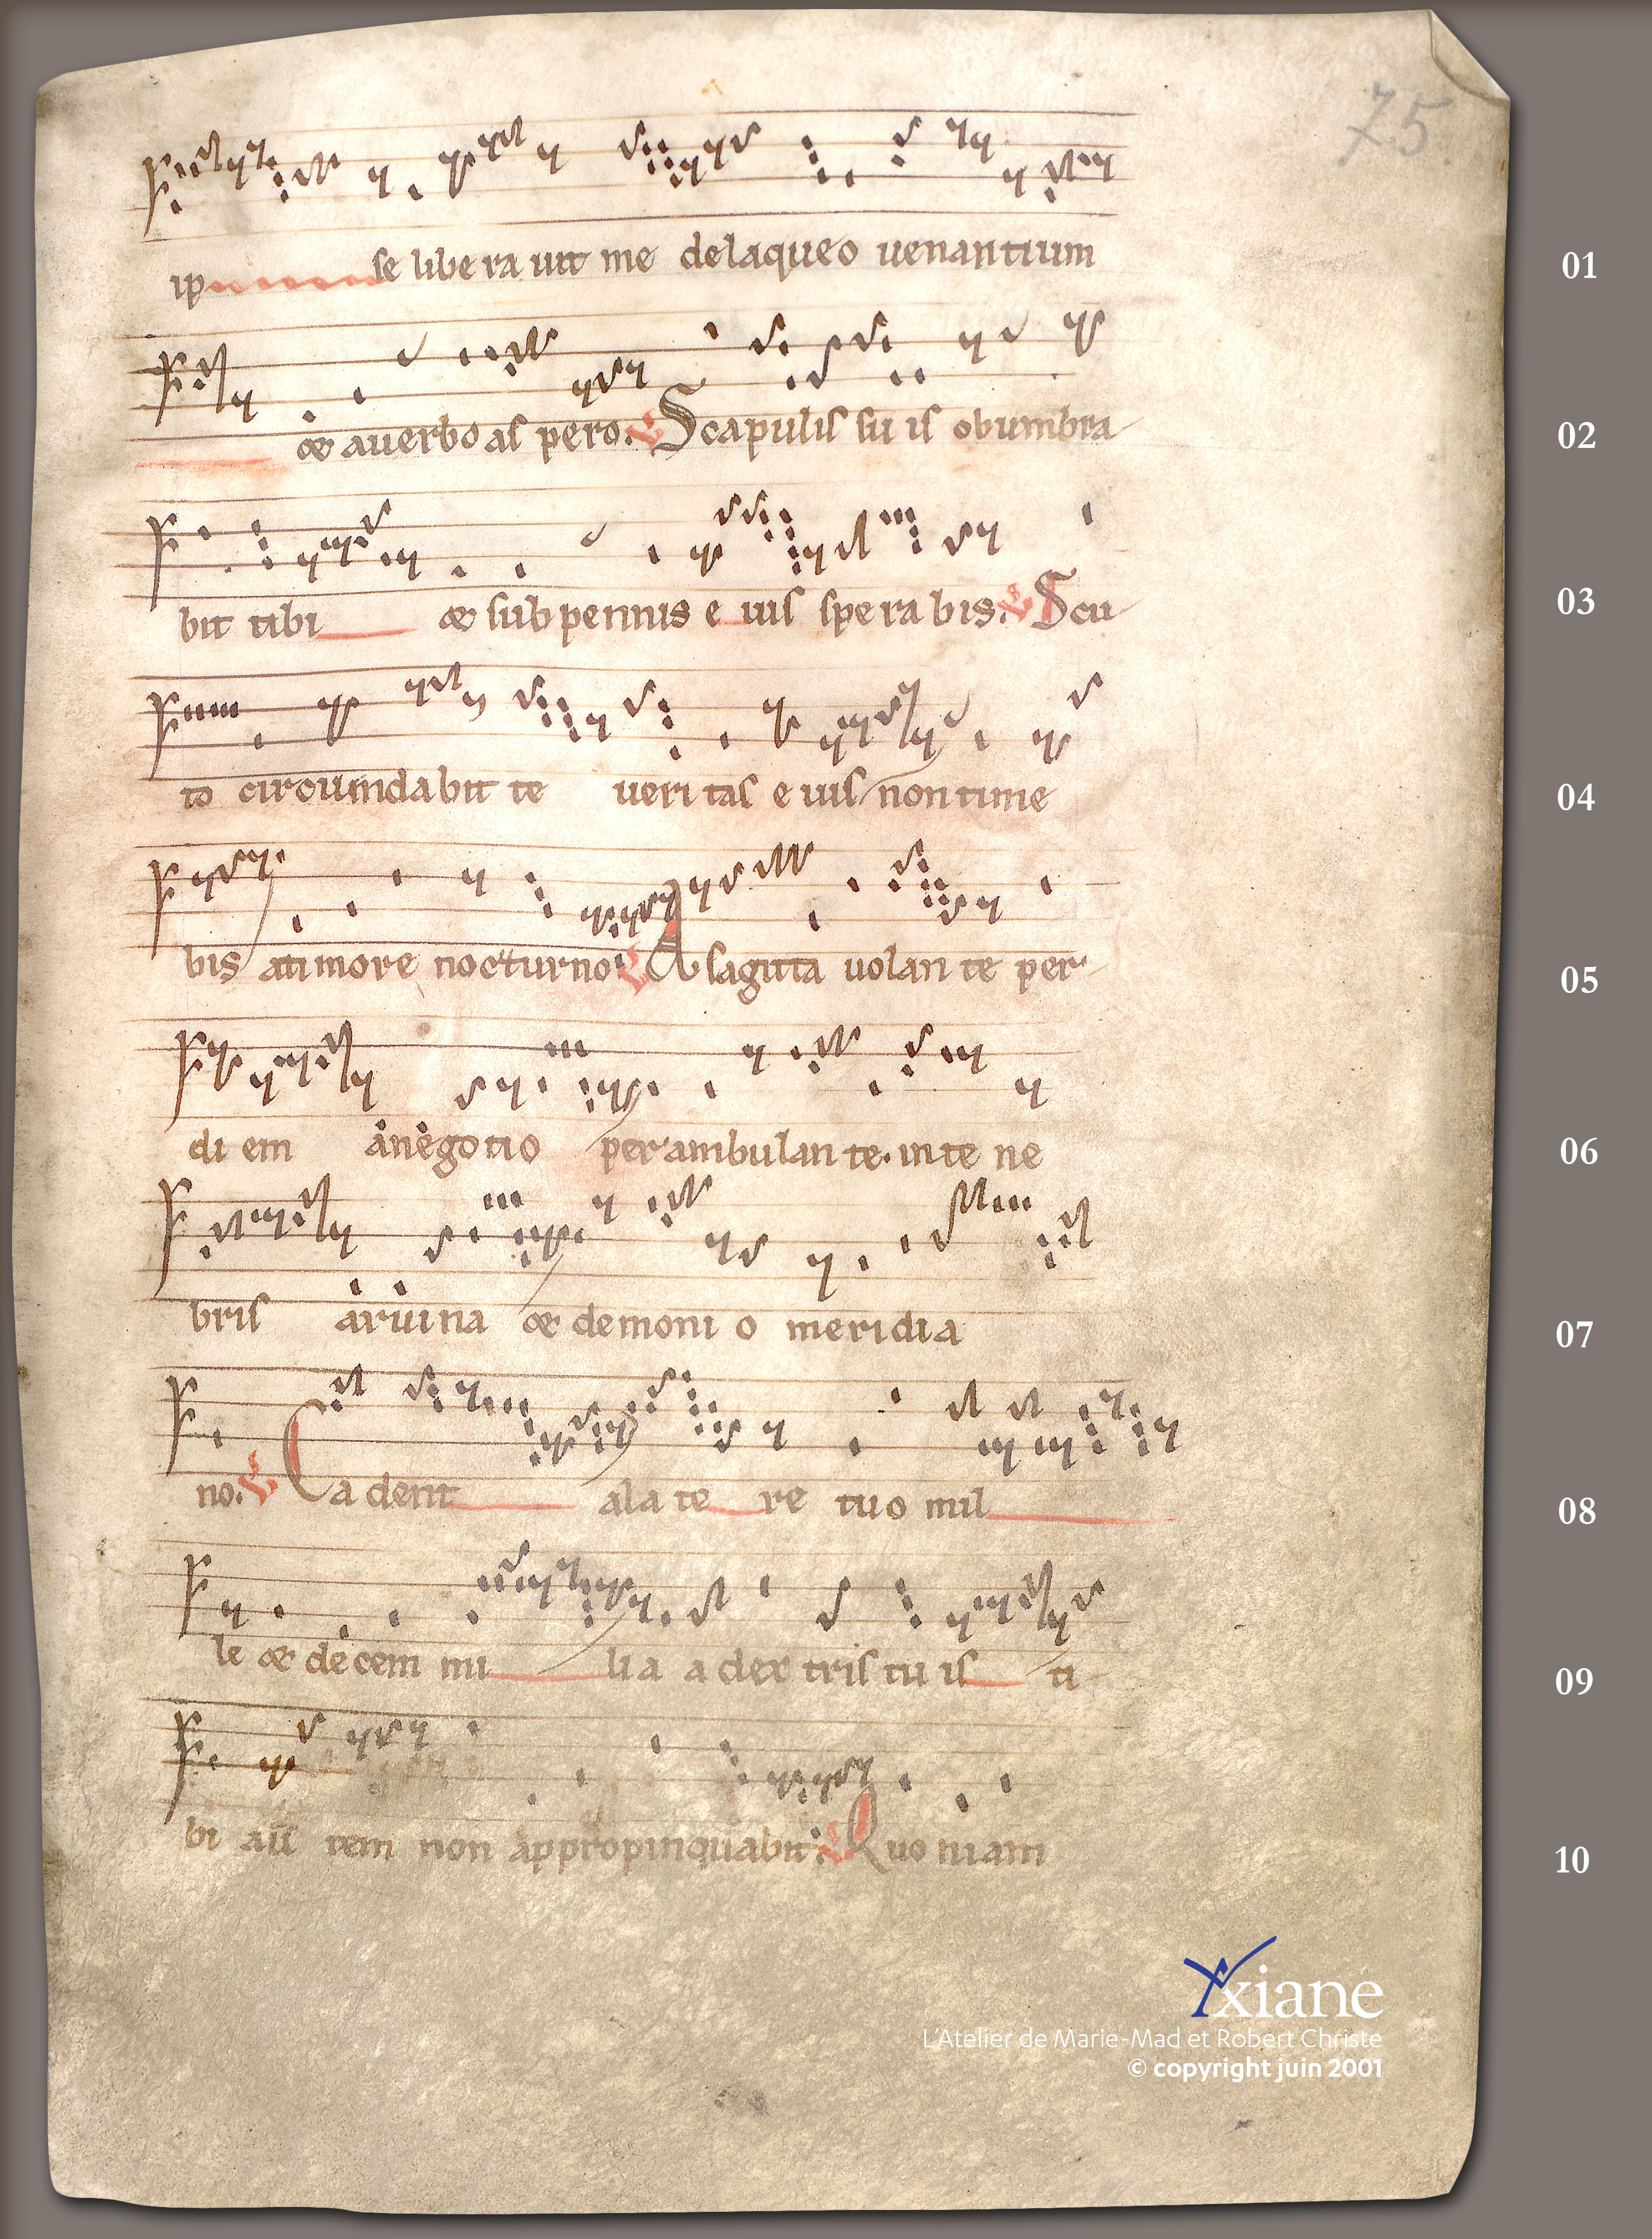 75
ip se libe ra uit me delaqueo uenantium
01
& auerbo as pero. V Scapulis su is obumbra
02
bit tibi & sub pennis e ius spe ra bis. V Scu
03
to circumdabit te ueri tas e ius non time
04
bis atimore nocturno. V A sagitta uolan te per
05
di em a negotio perambulan te. inte ne
06
bris aruina & demoni o meridia
07
no. V Ca dent ala te re tuo mil
08
le & decem mi lia a dex tris tu is ti
09
bi au tem non appropinquabit. V Quo niam
10
Yxiane
L'Atelier de Marie-Mad et Robert Christe
© copyright juin 2001